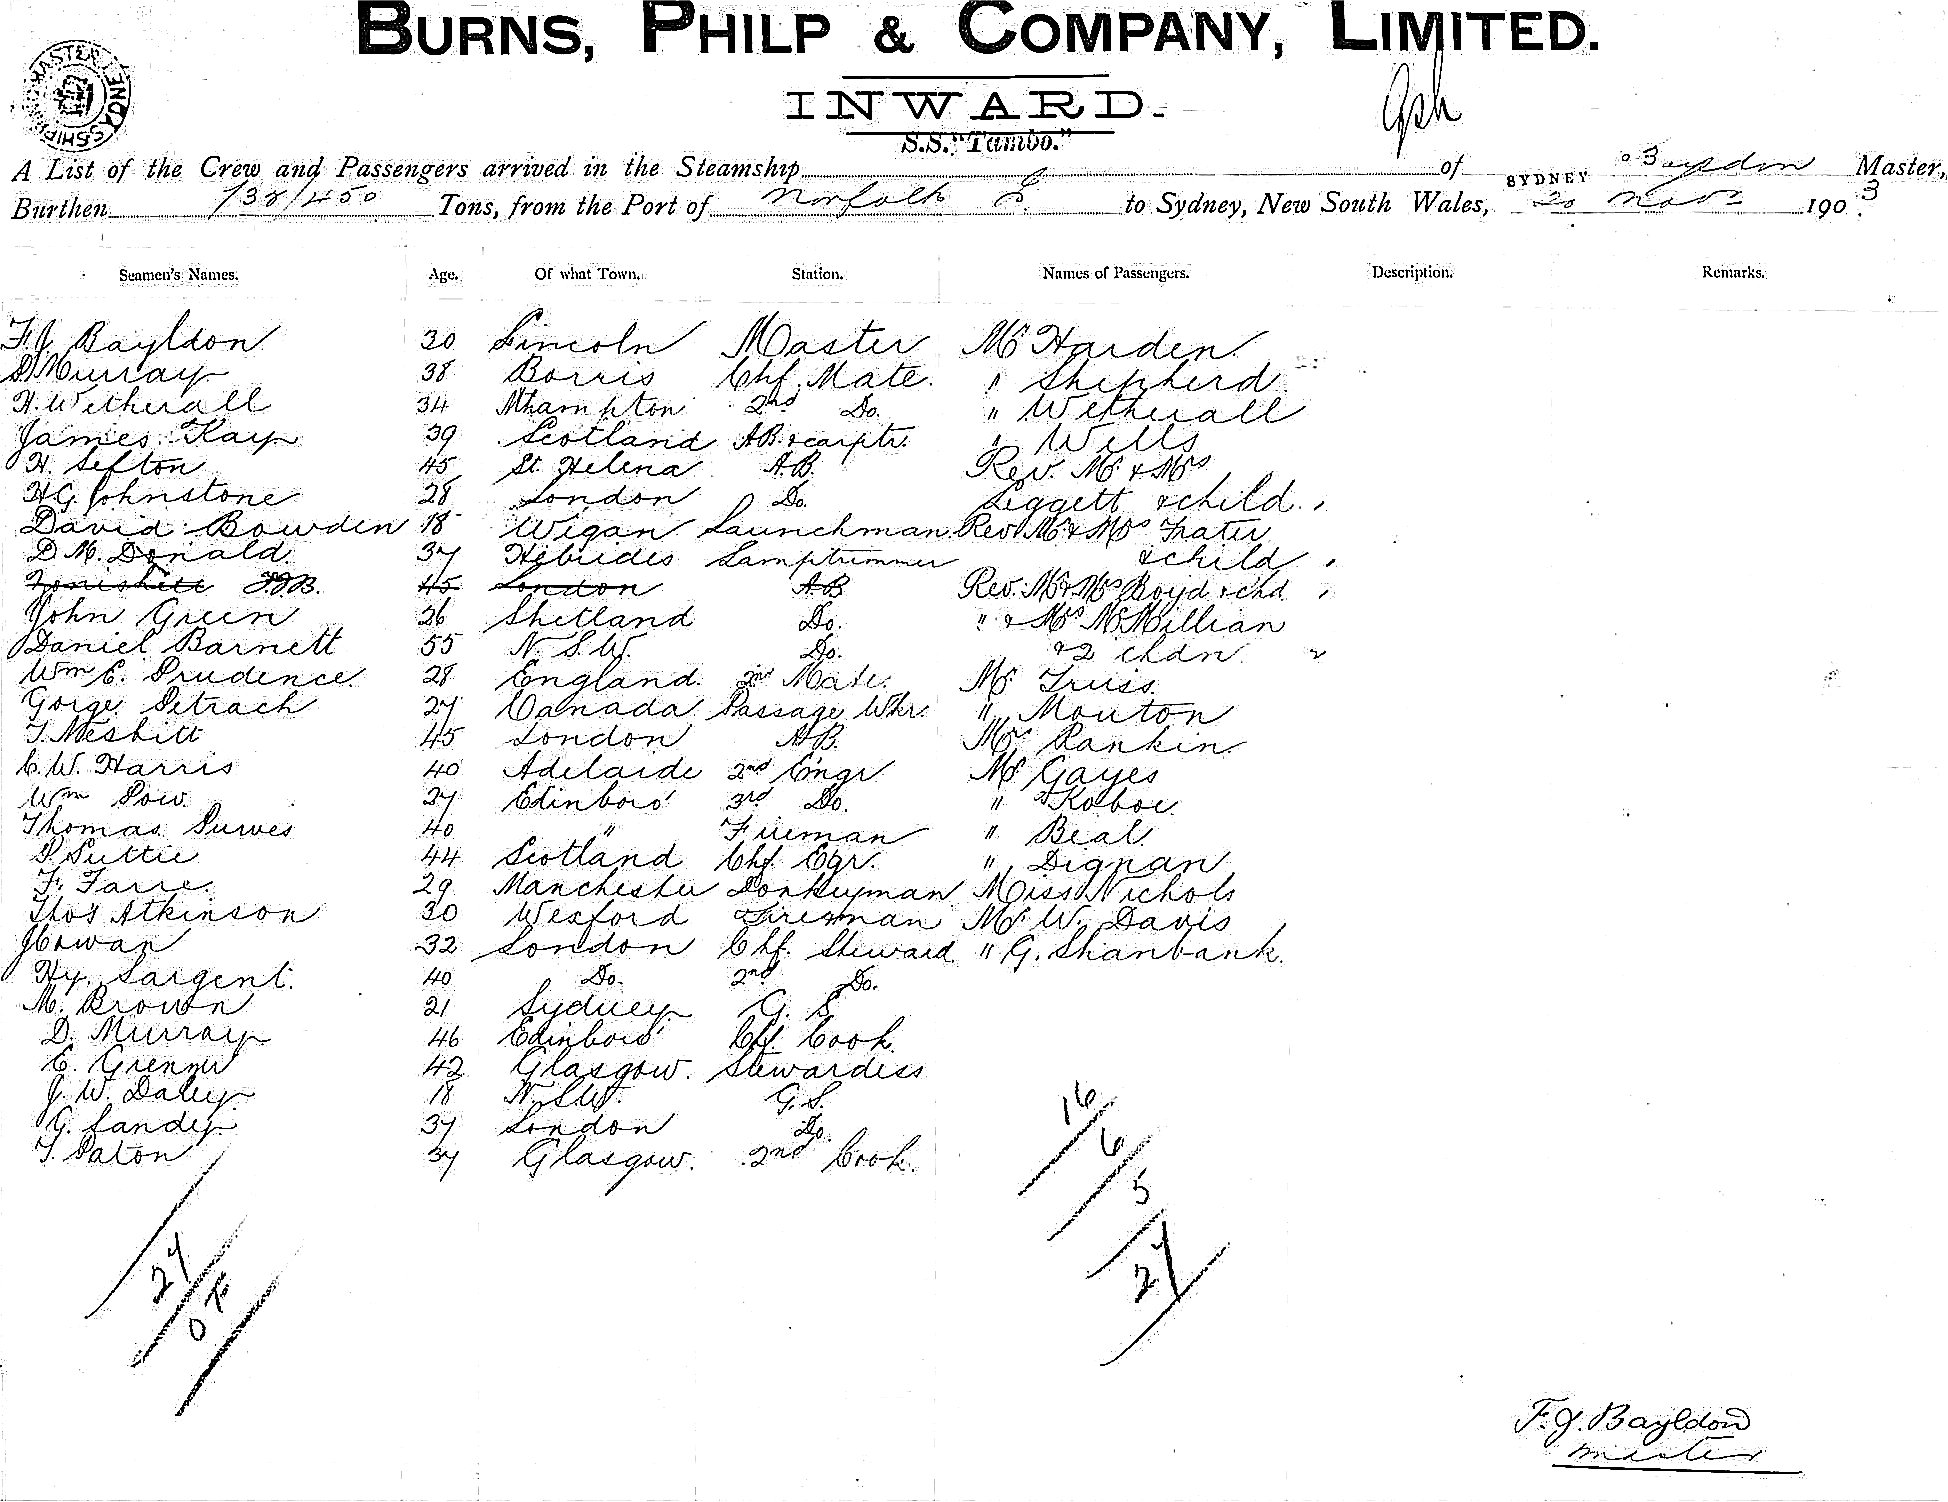 BURNS, PHILP & COMPANY, LIMITED.
INWARD.
S.S. "Tambo."
A List of the Crew and Passengers arrived in the Steamship of SYDNEY Bayldon Master,
Burthen 738/450 Tons, from the Port of Norfolk I. to Sydney, New South Wales, 20 Novr 1903
Seamen's Names. Age. Of what Town. Station. Names of Passengers. Description. Remarks.
F.J. Bayldon 30 Lincoln Master Mr Harden
D Murray 38 Borris Chf. Mate. " Shepherd
H. Witherall 34 Nthampton 2nd Do. " Witherall
James Kay 39 Scotland AB & carptr. " Wills
H. Sefton 45 St. Helena A.B. Rev. Mr & Mrs
H.G. Johnstone 28 London Do. Leggett & child.
David Bowden 18 Wigan Launchman Rev Mr & Mrs Frater
D Mc Donald 37 Hebrides Lamptrimmer & child
45 London AB Rev. Mr & Mrs Boyd & chd
John Green 26 Shetland Do. " & Mrs McMillian
Daniel Barnett 55 N.S.W. Do. & 2 chdn.
Wm E. Prudence 28 England 2nd Mate. Mr Truss
Gorge Petrach 27 Canada Passage Wkr. " Mouton
T. Nesbitt 45 London AB. Mrs Rankin
C.W. Harris 40 Adelaide 2nd Engr Mr Gayes
Wm Pow 27 Edinboro' 3rd Do. " Koboe
Thomas Purves 40 " Fireman " Beal
P Suttie 44 Scotland Chf Egr. " Dignan
F. Farre. 29 Manchester Donkeyman Miss Nichols
Thos Atkinson 30 Wexford Fireman Mr W. Davis
J Cowan 32 London Chf. Steward " G. Shanbank.
Hy. Sargent. 40 Do. 2nd Do.
M. Brown 21 Sydney G. S
D. Murray 46 Edinboro' Chf. Cook
E. Grenyer 42 Glasgow. Stewardess
J. W. Daley 18 N.S.W. G.S.
G. Sandey 37 London Do.
T. Paton 37 Glasgow. 2nd Cook.
16
6
5
27
27
F. J. Bayldon
master